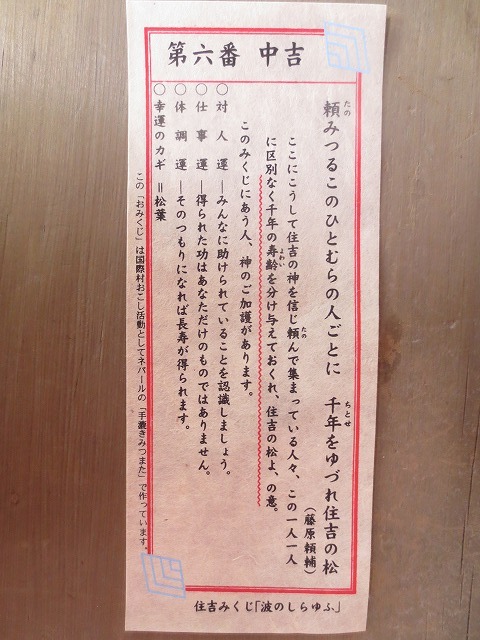 第六番 中吉
頼みつるこのひとむらの人ごとに 千年をゆづれ住吉の松
たの
ちとせ
(藤原頼輔)
ここにこうして住吉の神を信じ頼んで集まっている人々、この一人一人
たの
に区別なく千年の寿齢を分け与えておくれ、住吉の松よ、の意。
よわい
このみくじにあう人、神のご加護があります。
○対人運―みんなに助けられていることを認識しましょう。
○仕事運―得られた功はあなただけのものではありません。
○体調運―そのつもりになれば長寿が得られます。
○幸運のカギ=松葉
この「おみくじ」は国際村おこし活動としてネパールの「手漉きみつまた」で作っています。
住吉みくじ「波のしらゆふ」